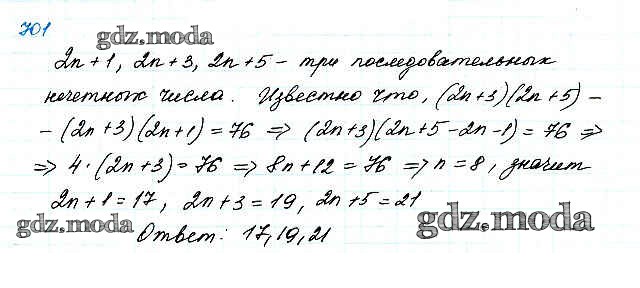 701
gdz.moda
2n+1, 2n+3, 2n+5 – три последовательных
нечетных числа. Известно что, (2n+3)(2n+5) –
– (2n+3)(2n+1) = 76 => (2n+3)(2n+5-2n-1) = 76 =>
=> 4·(2n+3) = 76 => 8n+12 = 76 => n = 8, значит
2n+1 = 17, 2n+3 = 19, 2n+5 = 21
gdz.moda gdz.moda
Ответ: 17, 19, 21